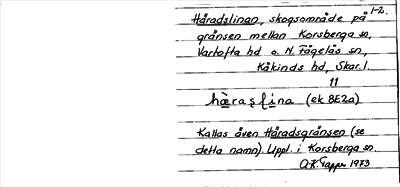 1-2.
Häradslinan, skogsområde på
gränsen mellan Korsberga sn,
Vartofta hd o. N. Fågelås sn,
Kåkinds hd, Skar. l.
11
(ek 8E2a)
Kallas även Häradsgränsen (se
detta namn). Uppl. i Korsberga sn.
1973